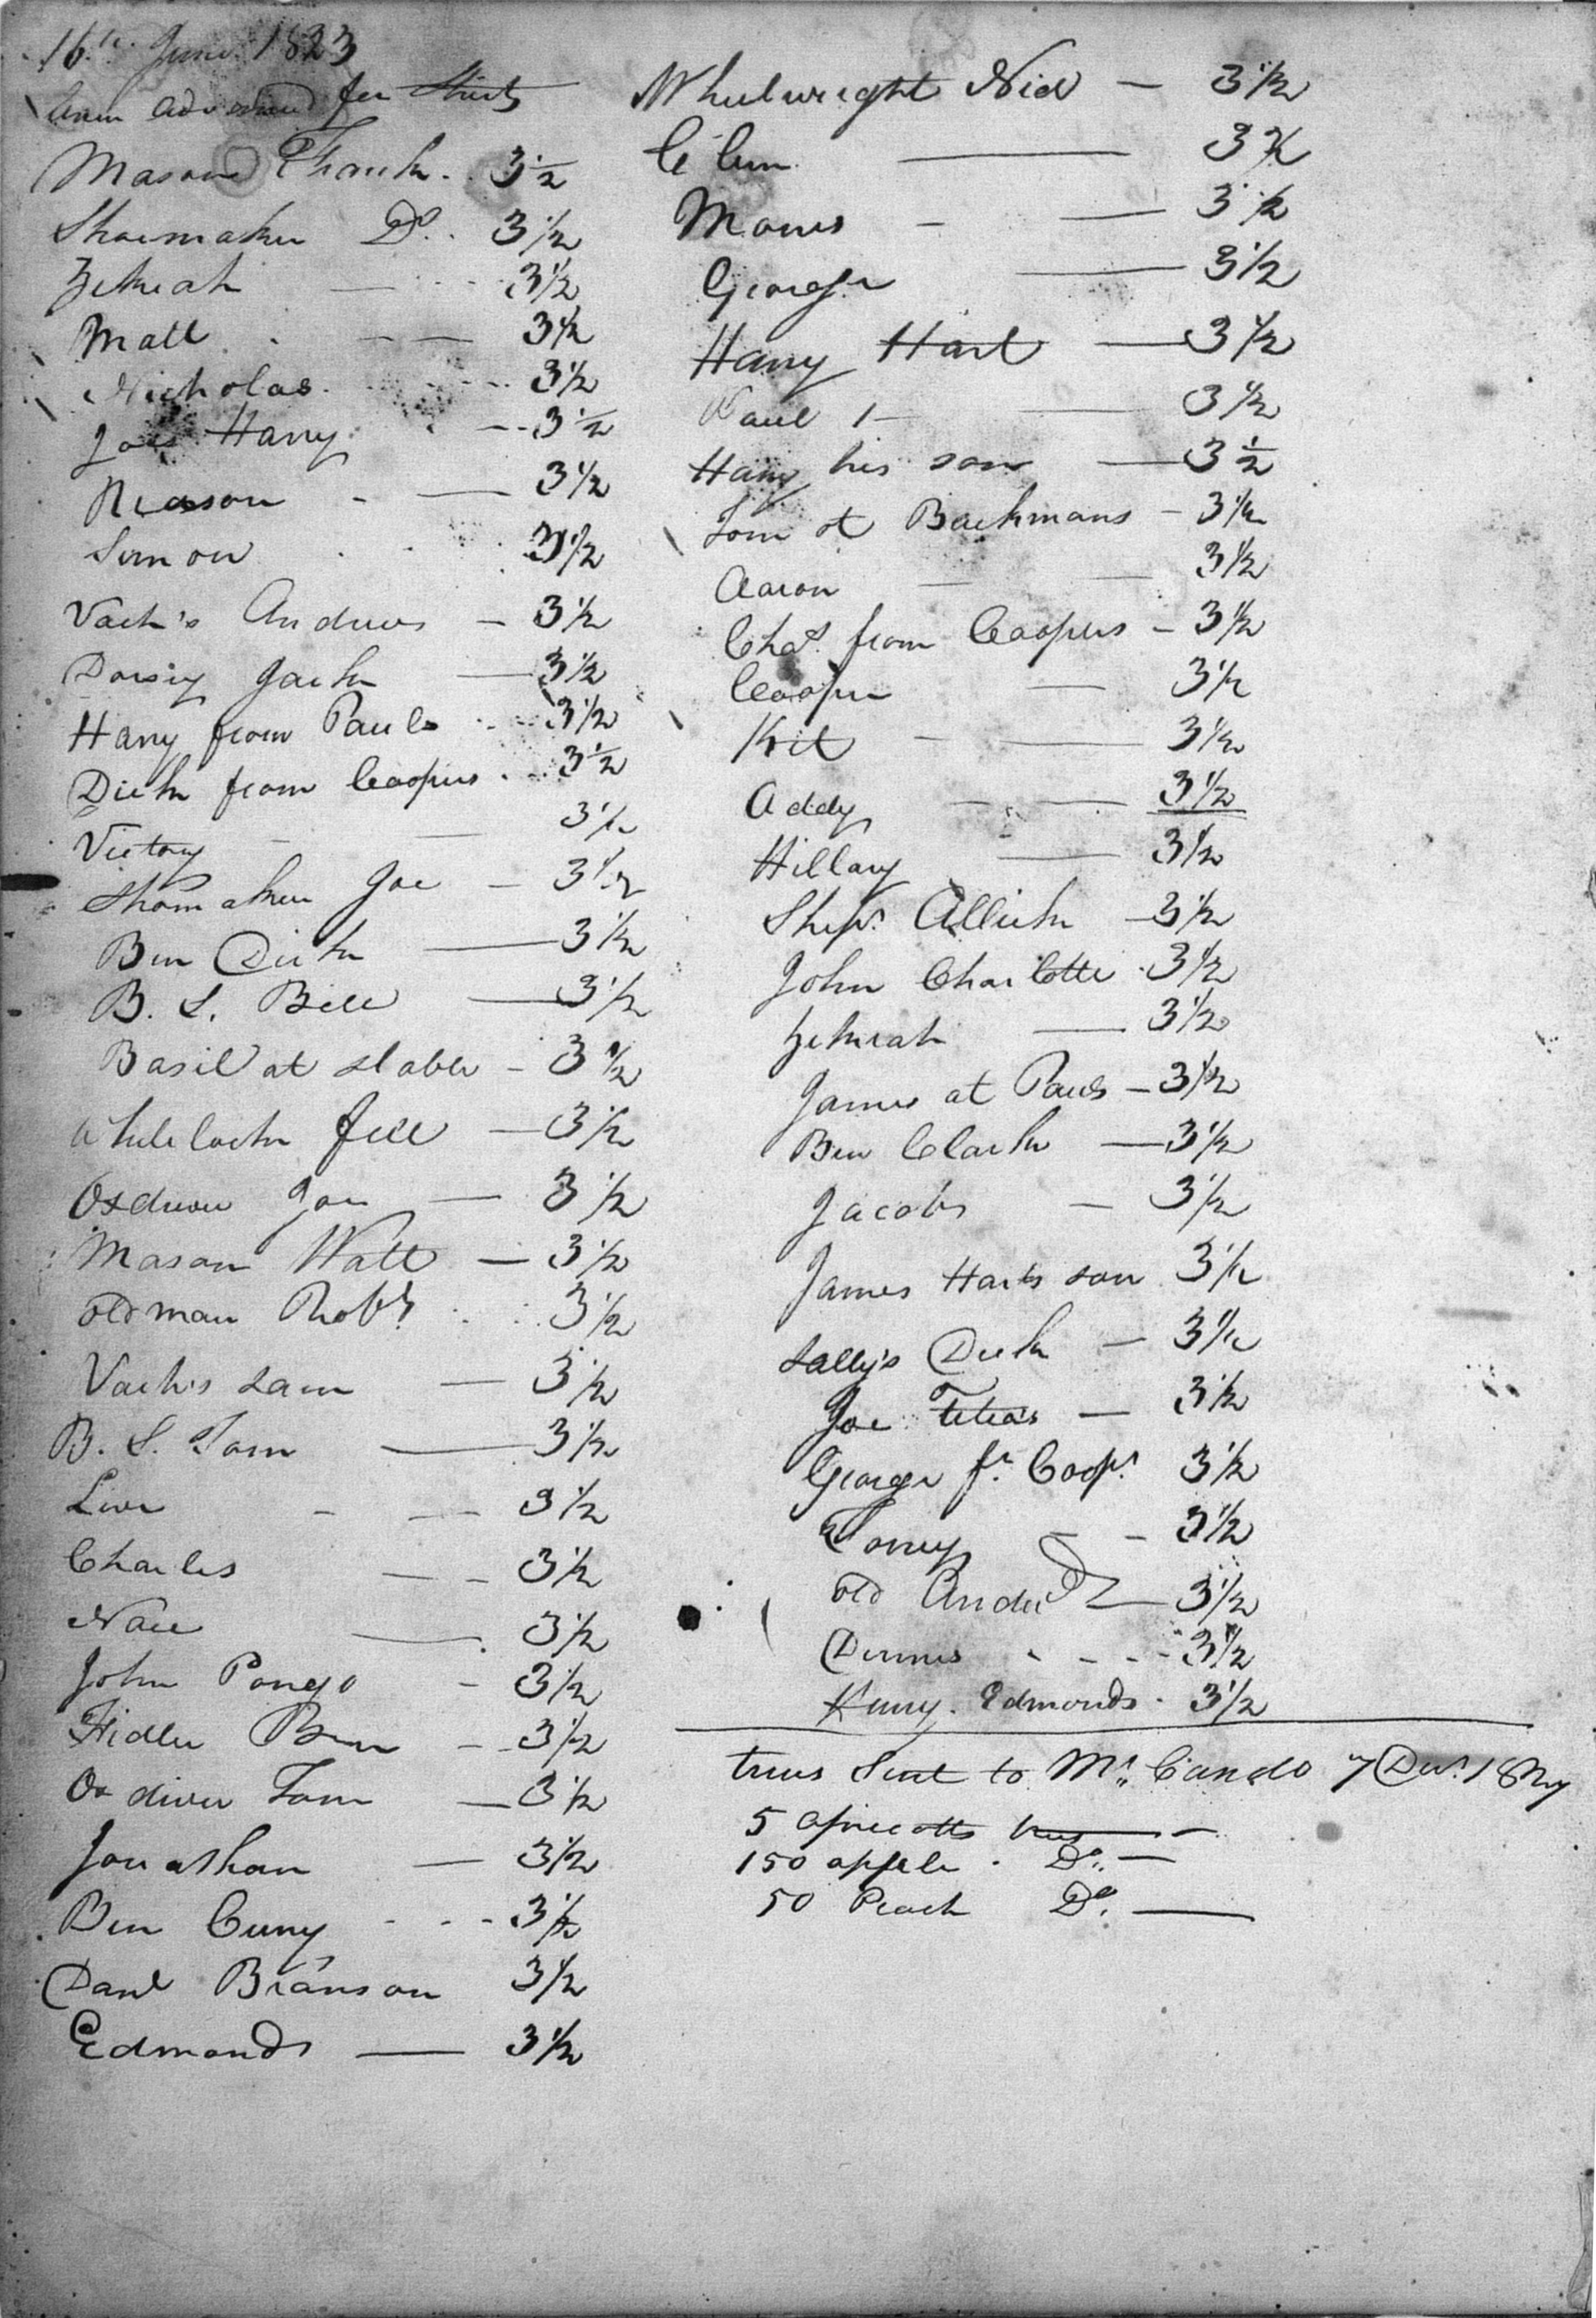 16th June 1823
linen advanced for Shirts
Mason Frank. 3½
Shoemaker Do. 3½
Zekiah — 3½
Matt — 3½
Nicholas — 3½
Joe Harry — 3½
Reason — 3½
Simon 3½
Vach's Andrew — 3½
Dorsey Jack — 3½
Harry from Pauls 3½
Dick from Coopers 3½
Victory — 3½
Shomaker Joe — 3½
Ben Dick — 3½
B. S. Bill — 3½
Basil at stable — 3½
3½
Oxdriver Joe — 3½
Mason Watt — 3½
old man Robt 3½
Vach's Sam — 3½
B. S. Tom — 3½
Live — 3½
Charles — 3½
Nace — 3½
John Pongo — 3½
Fidler Ben — 3½
Ox driver Tom — 3½
Jonathan — 3½
Ben Cuny - - - 3½
Danl Branson 3½
Edmonds — 3½
Wheelwright Nid — 3½
Clem — 3½
Moses — 3½
George — 3½
Harry Hart — 3½
Paul 1 — 3½
Harry his son — 3½
Tom at Backmans — 3½
Aaron — 3½
Chas. from Coopers — 3½
Cooper — 3½
Kit — 3½
Addy — 3½
Hillary — 3½
Shepd. Allick — 3½
John Charlotte . 3½
Zekiah — 3½
James at Pauls — 3½
Ben Clark — 3½
Jacob — 3½
James Harts son 3½
Sally's Dick — 3½
Joe — 3½
George fr. Coopr. 3½
Toney — 3½
old Andw — 3½
Dennis - - - 3½
Edmonds . 3½
trees Sent to Mr. 7 Decr.
5 apricotts trees —
150 apple . Do. —
50 Peach Do. —